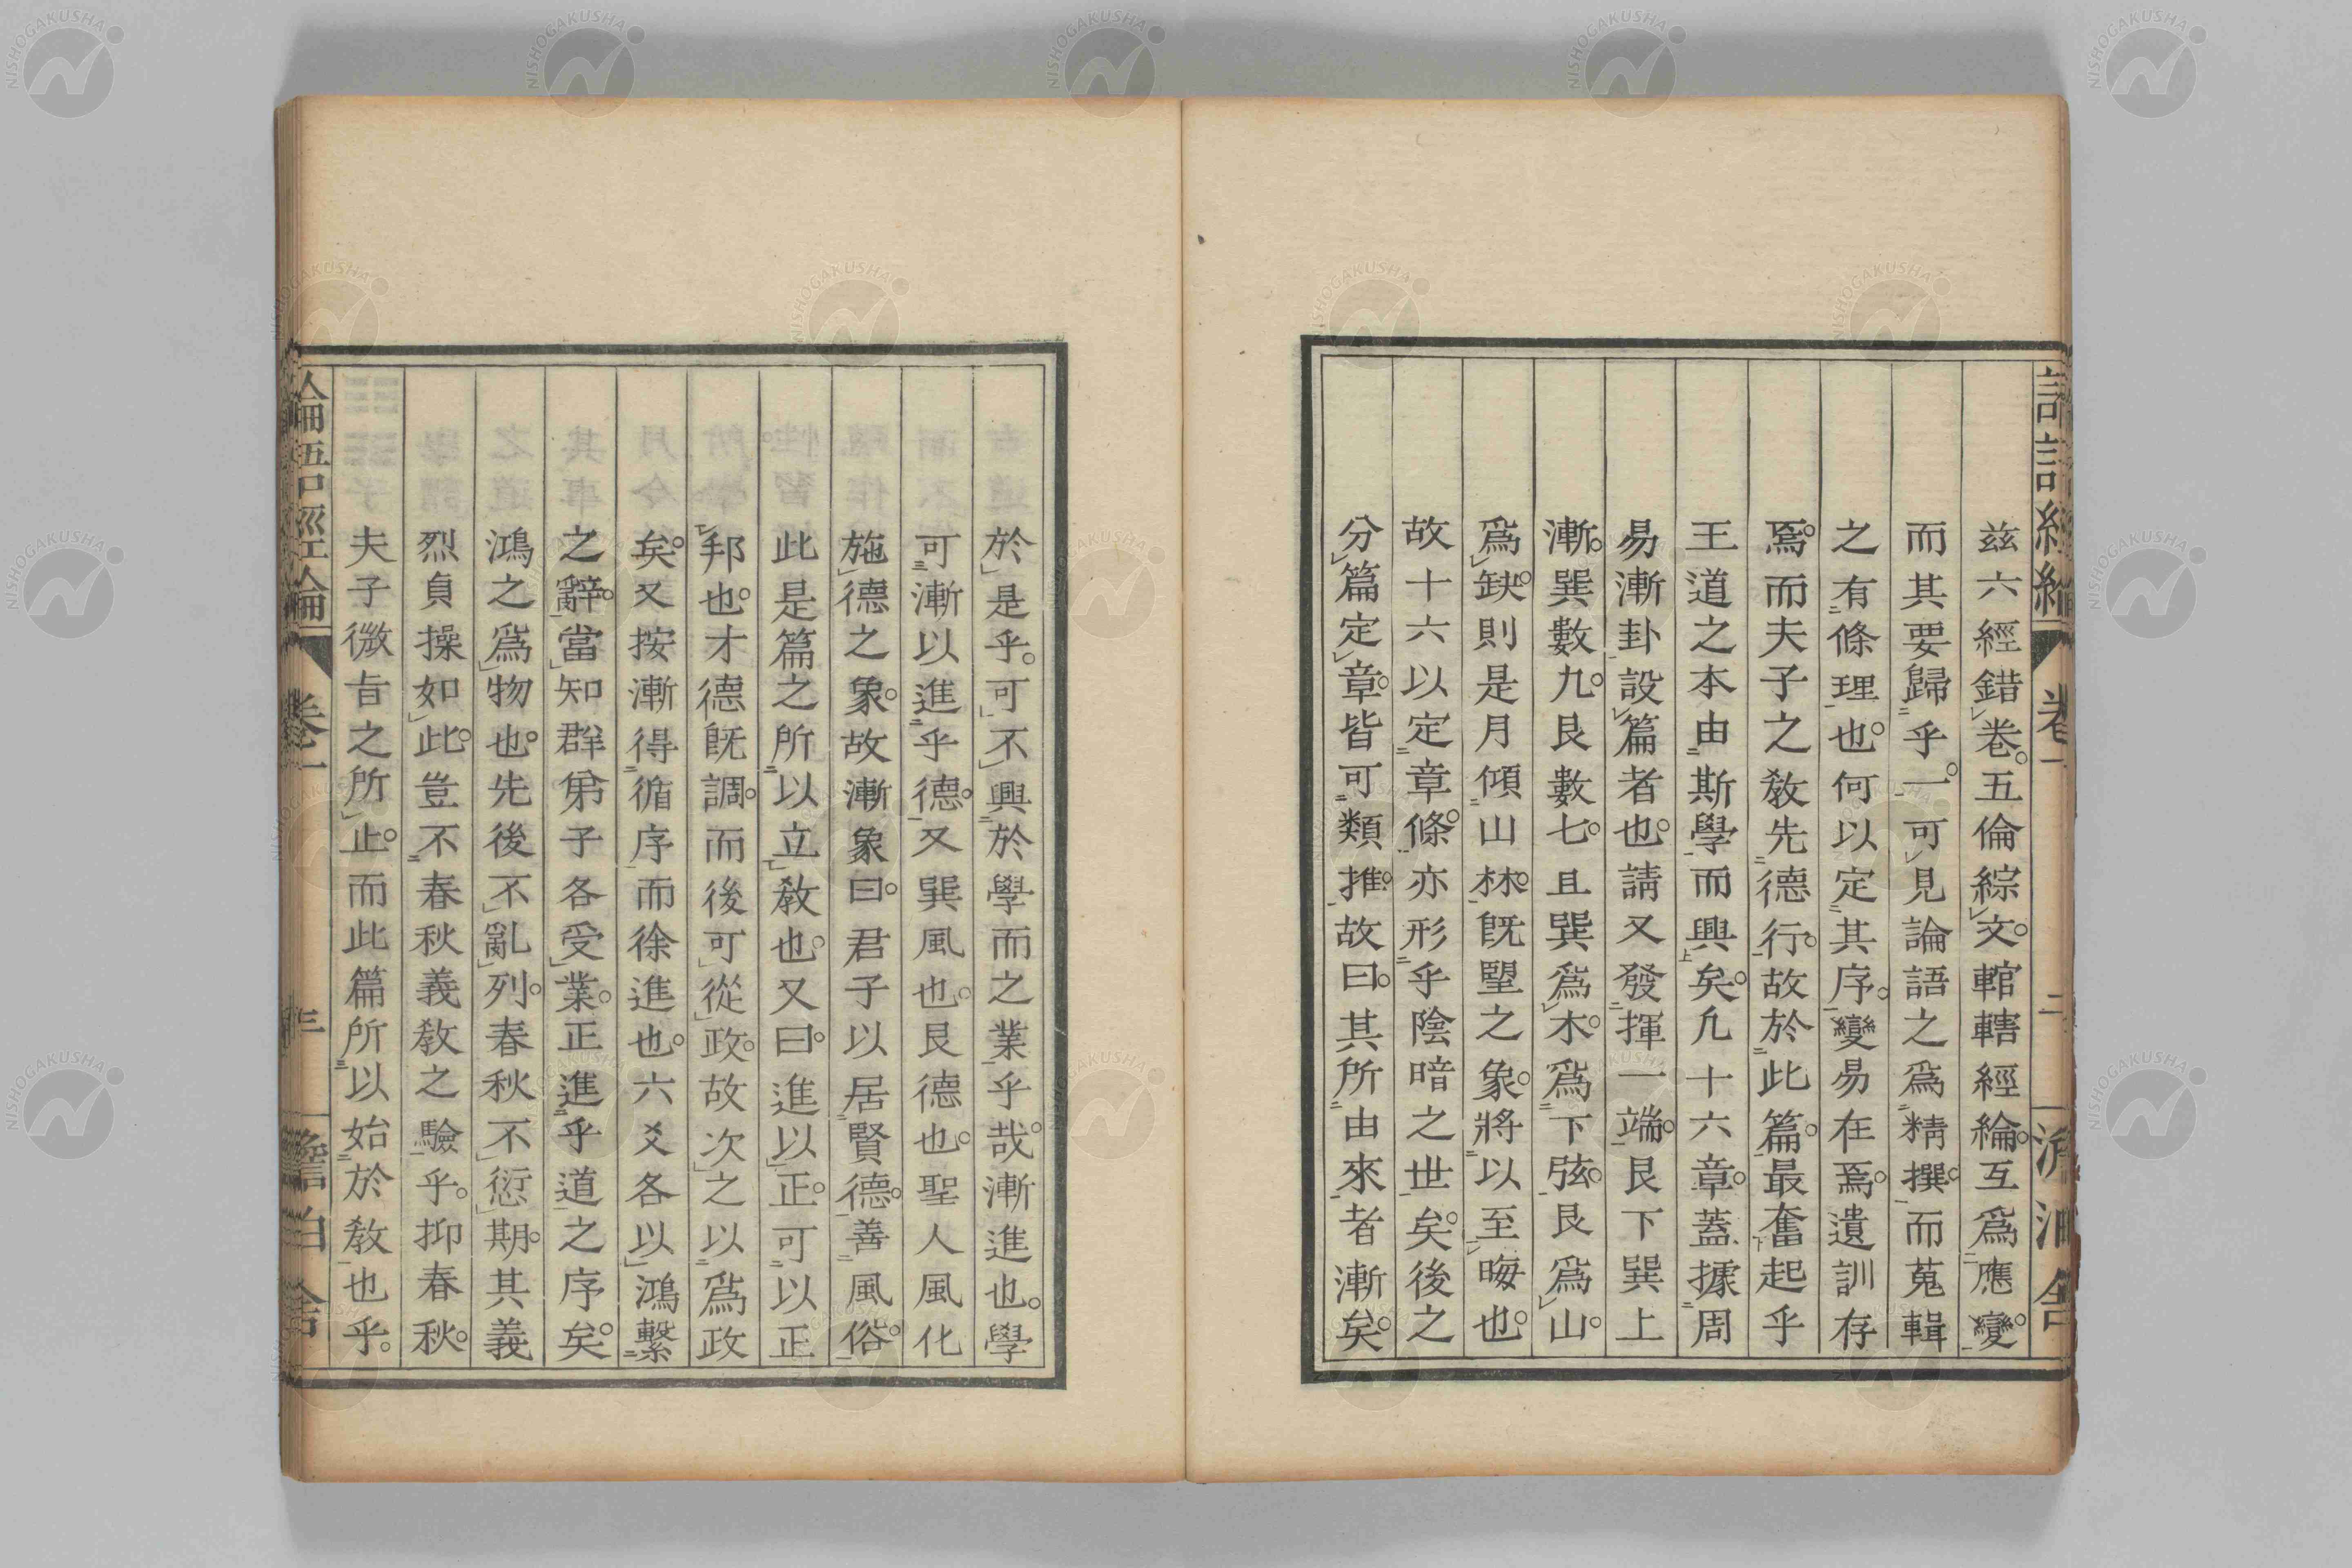 茲六經錯卷。五倫綜文。輨轄經綸。互爲應變。
而其要歸乎。一可見論語之爲精撰。而蒐輯
之有條理也。何以定其序。變易在焉。遺訓存
焉。而夫子之敎先德行。故於此篇。最奮起乎
王道之本由斯學而興矣。凡十六章。蓋據周
易漸卦設篇者也。請又發揮一端。艮下巽上
漸。巽數九。艮數七。且巽爲木。爲下弦。艮爲山。
爲缺。則是月傾山林。既朢之象。將以至晦也。
故十六以定章條。亦形乎陰暗之世矣。後之
分篇定章。皆可類推。故曰。其所由來者漸矣。
於是乎。可不興於學而之業乎哉。漸進也。學
可漸以進乎德。又巽風也。艮德也。聖人風化
施德之象。故漸象曰。君子以居賢德。善風俗。
此是篇之所以立敎也。又曰。進以正。可以正
邦也。才德既調。而後可從政。故次之以爲政
矣。又按漸得循序而徐進也。六爻各以鴻繫
之辭。當知群弟子各受業。正進乎道之序矣。
鴻之爲物也。先後不亂列。春秋不愆期。其義
烈貞操如此。豈不春秋義敎之驗乎。抑春秋。
夫子微旨之所止。而此篇所以始於敎也乎。
論語經綸 卷一 三 澹泊舍